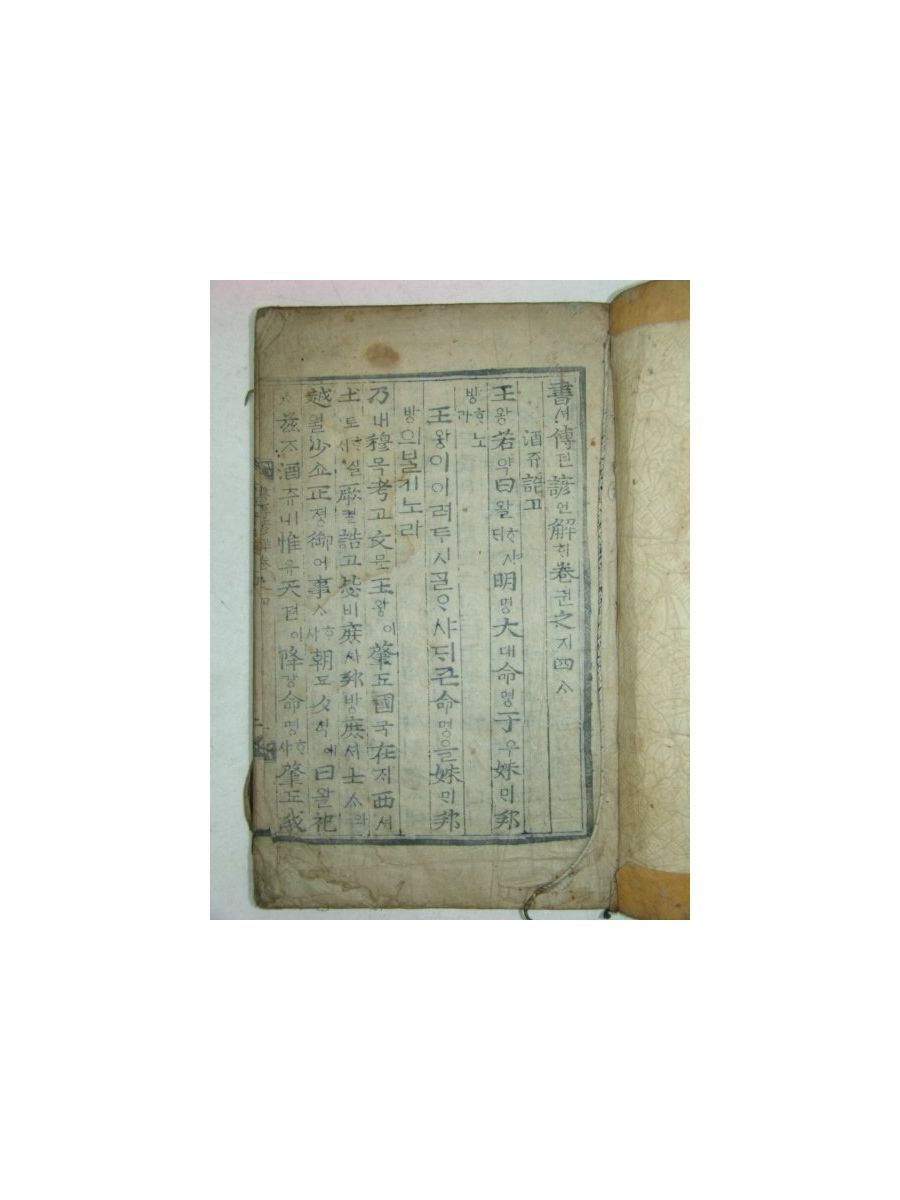 書셔傳젼諺언解ᄒᆡ卷권之지四ᄉᆞ
酒쥬誥고
王왕若약曰왈ᄒᆞ샤ᄃᆡ明명大대命명于우妹ᄆᆡ邦
방ᄒᆞ노라
王왕이이러투시ᄀᆞᆯᄋᆞ샤ᄃᆡ큰命명을妹ᄆᆡ邦
방의ᄇᆞᆯ기노라
乃내穆목考고文문王왕이肇됴國국在ᄌᆡ西셔
土토ᄒᆞ실ᄉᆡ厥궐誥고毖비庶셔邦방庶셔士ᄉᆞ와
越월少쇼正졍御어事ᄉᆞᄒᆞ샤朝됴夕셕에曰왈祀
ᄉᆞ玆ᄌᆞ酒쥬ㅣ니惟유天텬이降강命명ᄒᆞ샤肇됴我